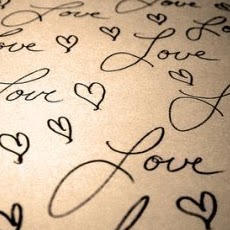 Love
Love
Love
Love
Love
Love
Love